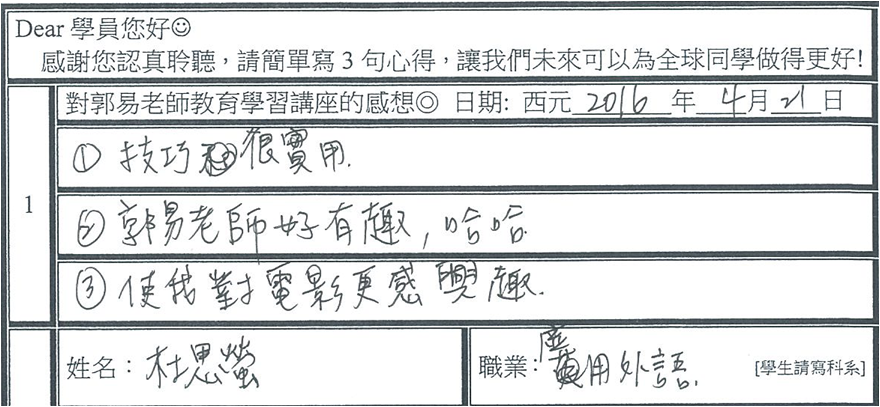 Dear 學員您好☺
感謝您認真聆聽，請簡單寫 3 句心得，讓我們未來可以為全球同學做得更好!
對郭易老師教育學習講座的感想◎ 日期: 西元 2016 年 4 月 21 日
① 技巧很實用.
1
② 郭易老師好有趣, 哈哈
③ 使我對電影更感興趣.
姓名： 杜思螢 職業: 應用外語. [學生請寫科系]